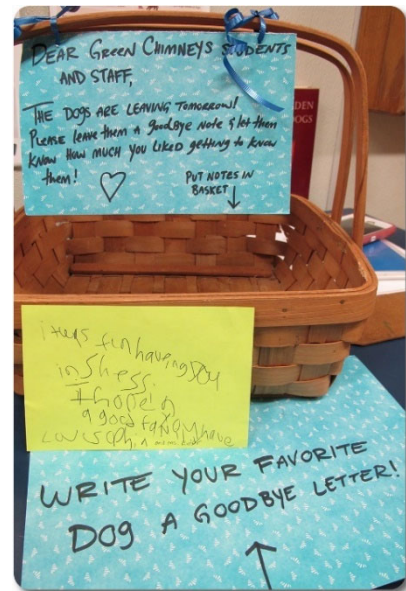 Dear Green Chimneys Students
and Staff,
The dogs are leaving tomorrow!
Please leave them a goodbye note & let them
know how much you liked getting to know
them!
Put notes in
basket
OGS
fun having you
in
I
a good
have
Write your favorite
Dog a goodbye letter!